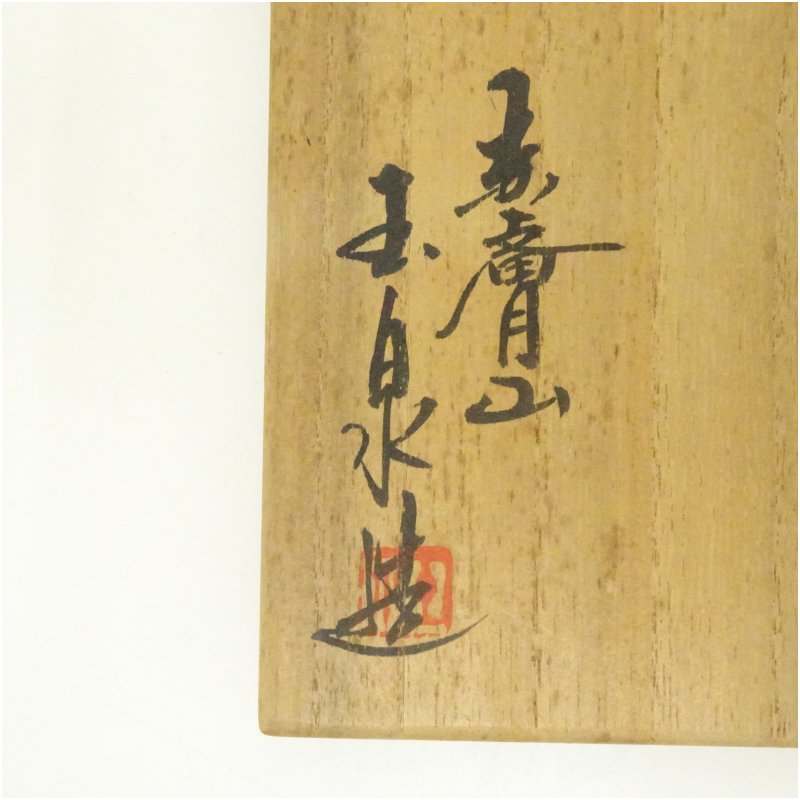 赤膚山
玉泉造